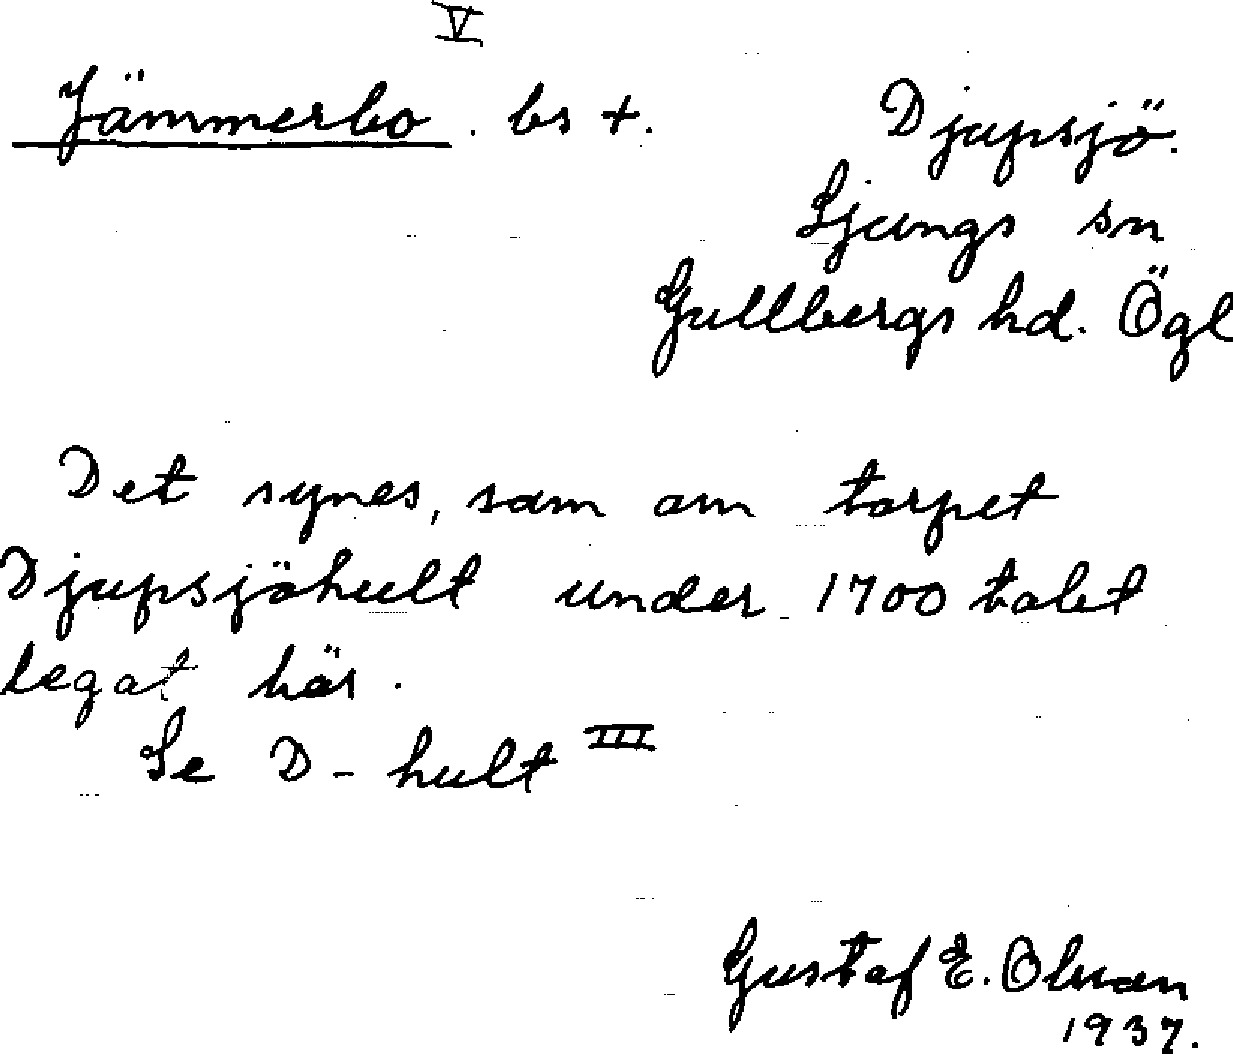 V
Jämmerbo. bs +. Djupsjö.
Ljungs sn
Gullbergs hd. Ögl
Det synes, som om torpet
Djupsjöhult under 1700 talet
legat här.
Se D-hult III
Gustaf E.
1937.